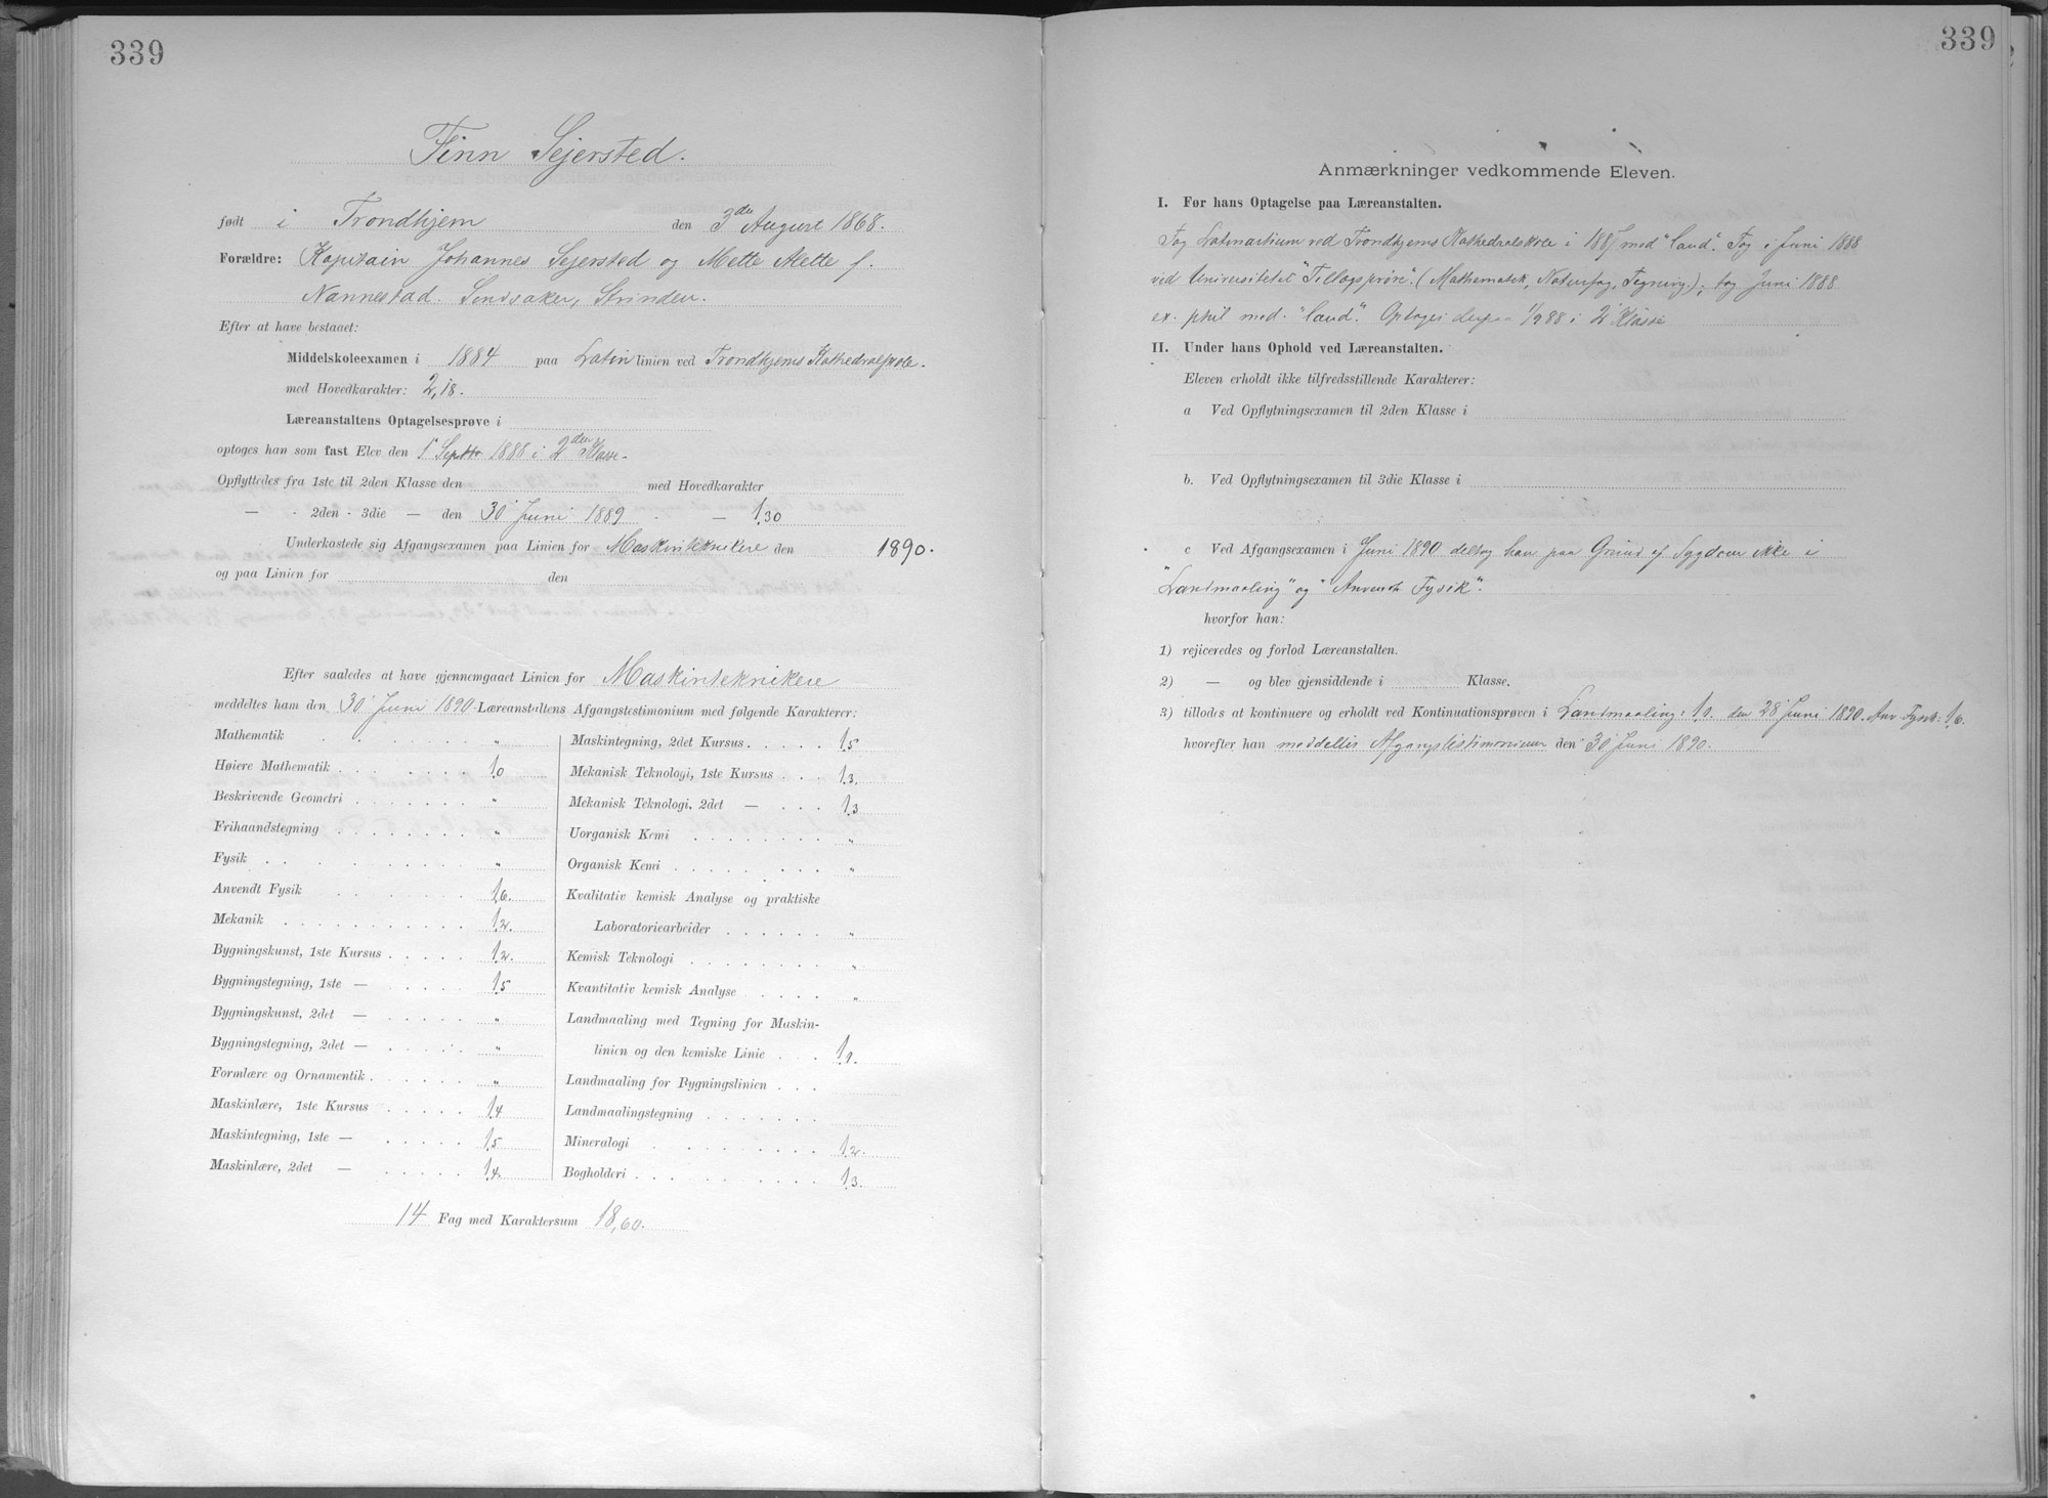 339
Finn Sejersted.
født i Trondhjem den 3die August 1868.
Forældre: Kapitain Johannes Sejersted og Mette Alette f.
Nannestad. Strinden.
Efter at have bestaaet:
Middelskoleexamen i 1884 paa Latin linien ved Trondhjems Kathedralskole.
med Hovedkarakter: 2,18.
Læreanstaltens Optagelsesprøve i
optoges han som fast Elev den 1 Septbr 1888 i 2den Klasse.
Opflyttedes fra 1ste til 2den Klasse den med Hovedkarakter
— - 2den - 3die — den 30 Juni 1889 - — 1,30
Underkastede sig Afgangsexamen paa Linien for Maskinteknikere den 1890.
og paa Linien for den
Efter saaledes at have gjennemgaaet Linien for Maskinteknikere
meddeltes ham den 30 Juni 1890 Læreanstaltens Afgangstestimonium med følgende Karakterer:
Mathematik "
Høiere Mathematik 1,0
Beskrivende Geometri "
Frihaandstegning "
Fysik "
Anvendt Fysik 1,6.
Mekanik 1,2.
Bygningskunst, 1ste Kursus 1,2.
Bygningstegning, 1ste — 1,5
Bygningskunst, 2det — "
Bygningstegning, 2det — "
Formlære og Ornamentik "
Maskinlære, 1ste Kursus 1,4
Maskintegning, 1ste — 1,5
Maskinlære, 2det — 1,4.
Maskintegning, 2det Kursus 1,5
Mekanisk Teknologi, 1ste Kursus 1,3.
Mekanisk Teknologi, 2det — 1,3
Uorganisk Kemi "
Organisk Kemi "
Kvalitativ kemisk Analyse og praktiske
Laboratoriearbeider "
Kemisk Teknologi "
Kvantitativ kemisk Analyse "
Landmaaling med Tegning for Maskin-
linien og den kemiske Linie 1,1.
Landmaaling for Bygningslinien
Landmaalingstegning
Mineralogi 1,2.
Bogholderi 1,3.
14 Fag med Karaktersum 18,60.
339
Anmærkninger vedkommende Eleven.
I. Før hans Optagelse paa Læreanstalten.
Tog Latinartium ved Trondhjems Kathedralskole i 1887 med "laud". Tog i Juni 1888
ved Universitetet "Tillægsprøve". (Mathematik, Naturfag, Tegning); tog Juni 1888
ex. phil med. "laud". Optoges derpaa 1/9 88 i 2 Klasse
II. Under hans Ophold ved Læreanstalten.
Eleven erholdt ikke tilfredsstillende Karakterer:
a Ved Opflytningsexamen til 2den Klasse i
b. Ved Opflytningsexamen til 3die Klasse i
c Ved Afgangsexamen i Juni 1890 deltog han paa Grund af Sygdom ikke i
"Landmaaling" og "Anvendt Fysik".
hvorfor han:
1) rejiceredes og forlod Læreanstalten.
2) — og blev gjensiddende i Klasse.
3) tillodes at kontinuere og erholdt ved Kontinuationsprøven i Landmaaling: 1,1. den 28 Juni 1890. Anv. Fysik: 1,6.
hvorefter han meddeltes Afgangstestimonium den 30 Juni 1890.